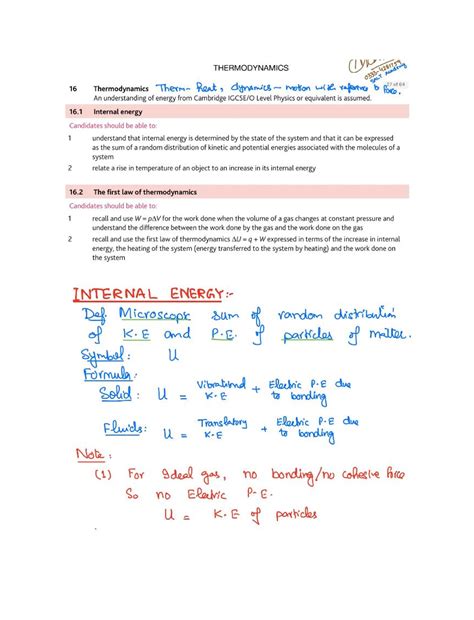 THERMODYNAMICS
16 Thermodynamics Therm- Heat, dynamics - motion with reference to force.
An understanding of energy from Cambridge IGCSE/O Level Physics or equivalent is assumed.
16.1 Internal energy
Candidates should be able to:
1 understand that internal energy is determined by the state of the system and that it can be expressed
as the sum of a random distribution of kinetic and potential energies associated with the molecules of a
system
2 relate a rise in temperature of an object to an increase in its internal energy
16.2 The first law of thermodynamics
Candidates should be able to:
1 recall and use W = pΔV for the work done when the volume of a gas changes at constant pressure and
understand the difference between the work done by the gas and the work done on the gas
2 recall and use the first law of thermodynamics ΔU = q + W expressed in terms of the increase in internal
energy, the heating of the system (energy transferred to the system by heating) and the work done on
the system
INTERNAL ENERGY:-
Def. Microscopic sum of random distribution
of K.E and P.E. of particles of matter.
Symbol: U
Formula:
Solid: U = Vibrational K.E + Electric P.E due to bonding
Fluids: U = Translatory K.E + Electric P.E due to bonding
Note:
(1) For Ideal gas, no bonding/no cohesive force
So no Electric P.E.
U = K.E of particles